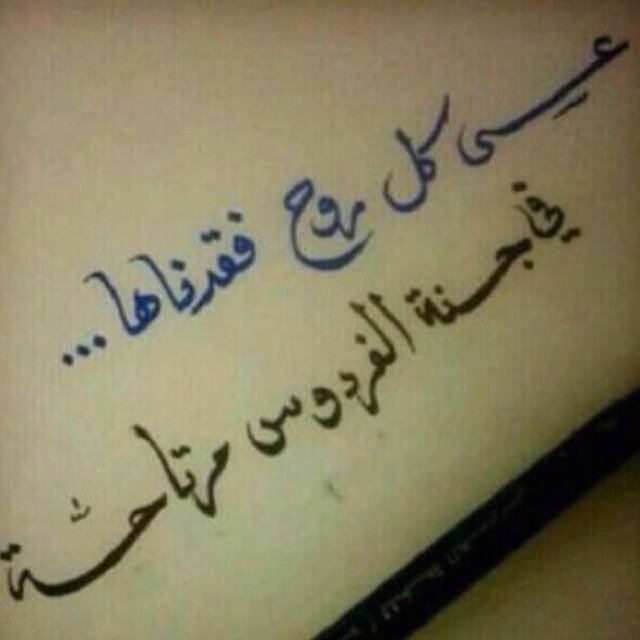 عسى كل روح فقدناها...
في جنة الفردوس مرتاحة